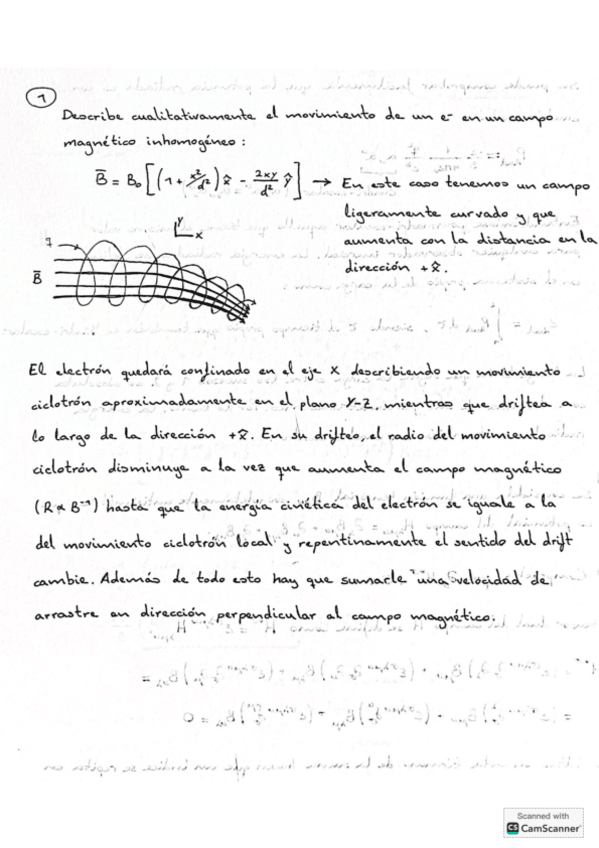 1
Describe cualitativamente el movimiento de un e⁻ en un campo
magnético inhomogéneo:
B̄ = B₀ [(1 + x²/d²) x̂ - 2xy/d² ŷ] → En este caso tenemos un campo
ligeramente curvado y que
aumenta con la distancia en la
dirección +x̂.
y
x
q
B̄
El electrón quedará confinado en el eje x describiendo un movimiento
ciclotrón aproximadamente en el plano Y-Z, mientras que driftea a
lo largo de la dirección +x̂. En su drifteo, el radio del movimiento
ciclotrón disminuye a la vez que aumenta el campo magnético
(R ∝ B⁻¹) hasta que la energía cinética del electrón se iguale a la
del movimiento ciclotrón local y repentinamente el sentido del drift
cambie. Además de todo esto hay que sumarle una velocidad de
arrastre en dirección perpendicular al campo magnético.
Scanned with
CS CamScanner